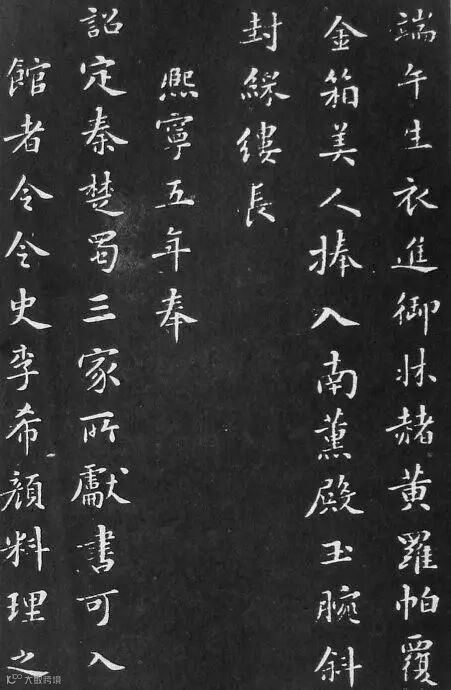 端午生衣進御牀赭黃羅帕覆
金箱美人捧入南薰殿玉腕斜
封綵縷長
熙寧五年奉
詔定秦楚蜀三家所獻書可入
館者令令史李希顏料理之
大数跨境